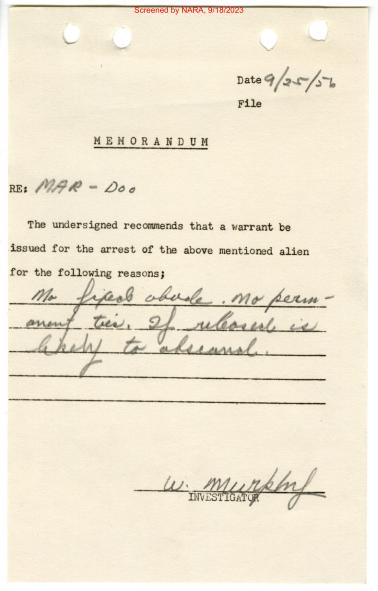 Screened by NARA, 9/18/2023
Date 9/25/56
File
MEMORANDUM
RE: MAR - Doo
The undersigned recommends that a warrant be
issued for the arrest of the above mentioned alien
for the following reasons;
No fixed abode. No perm-
anent ties. If released is
likely to abscond.
W. Murphy
INVESTIGATOR